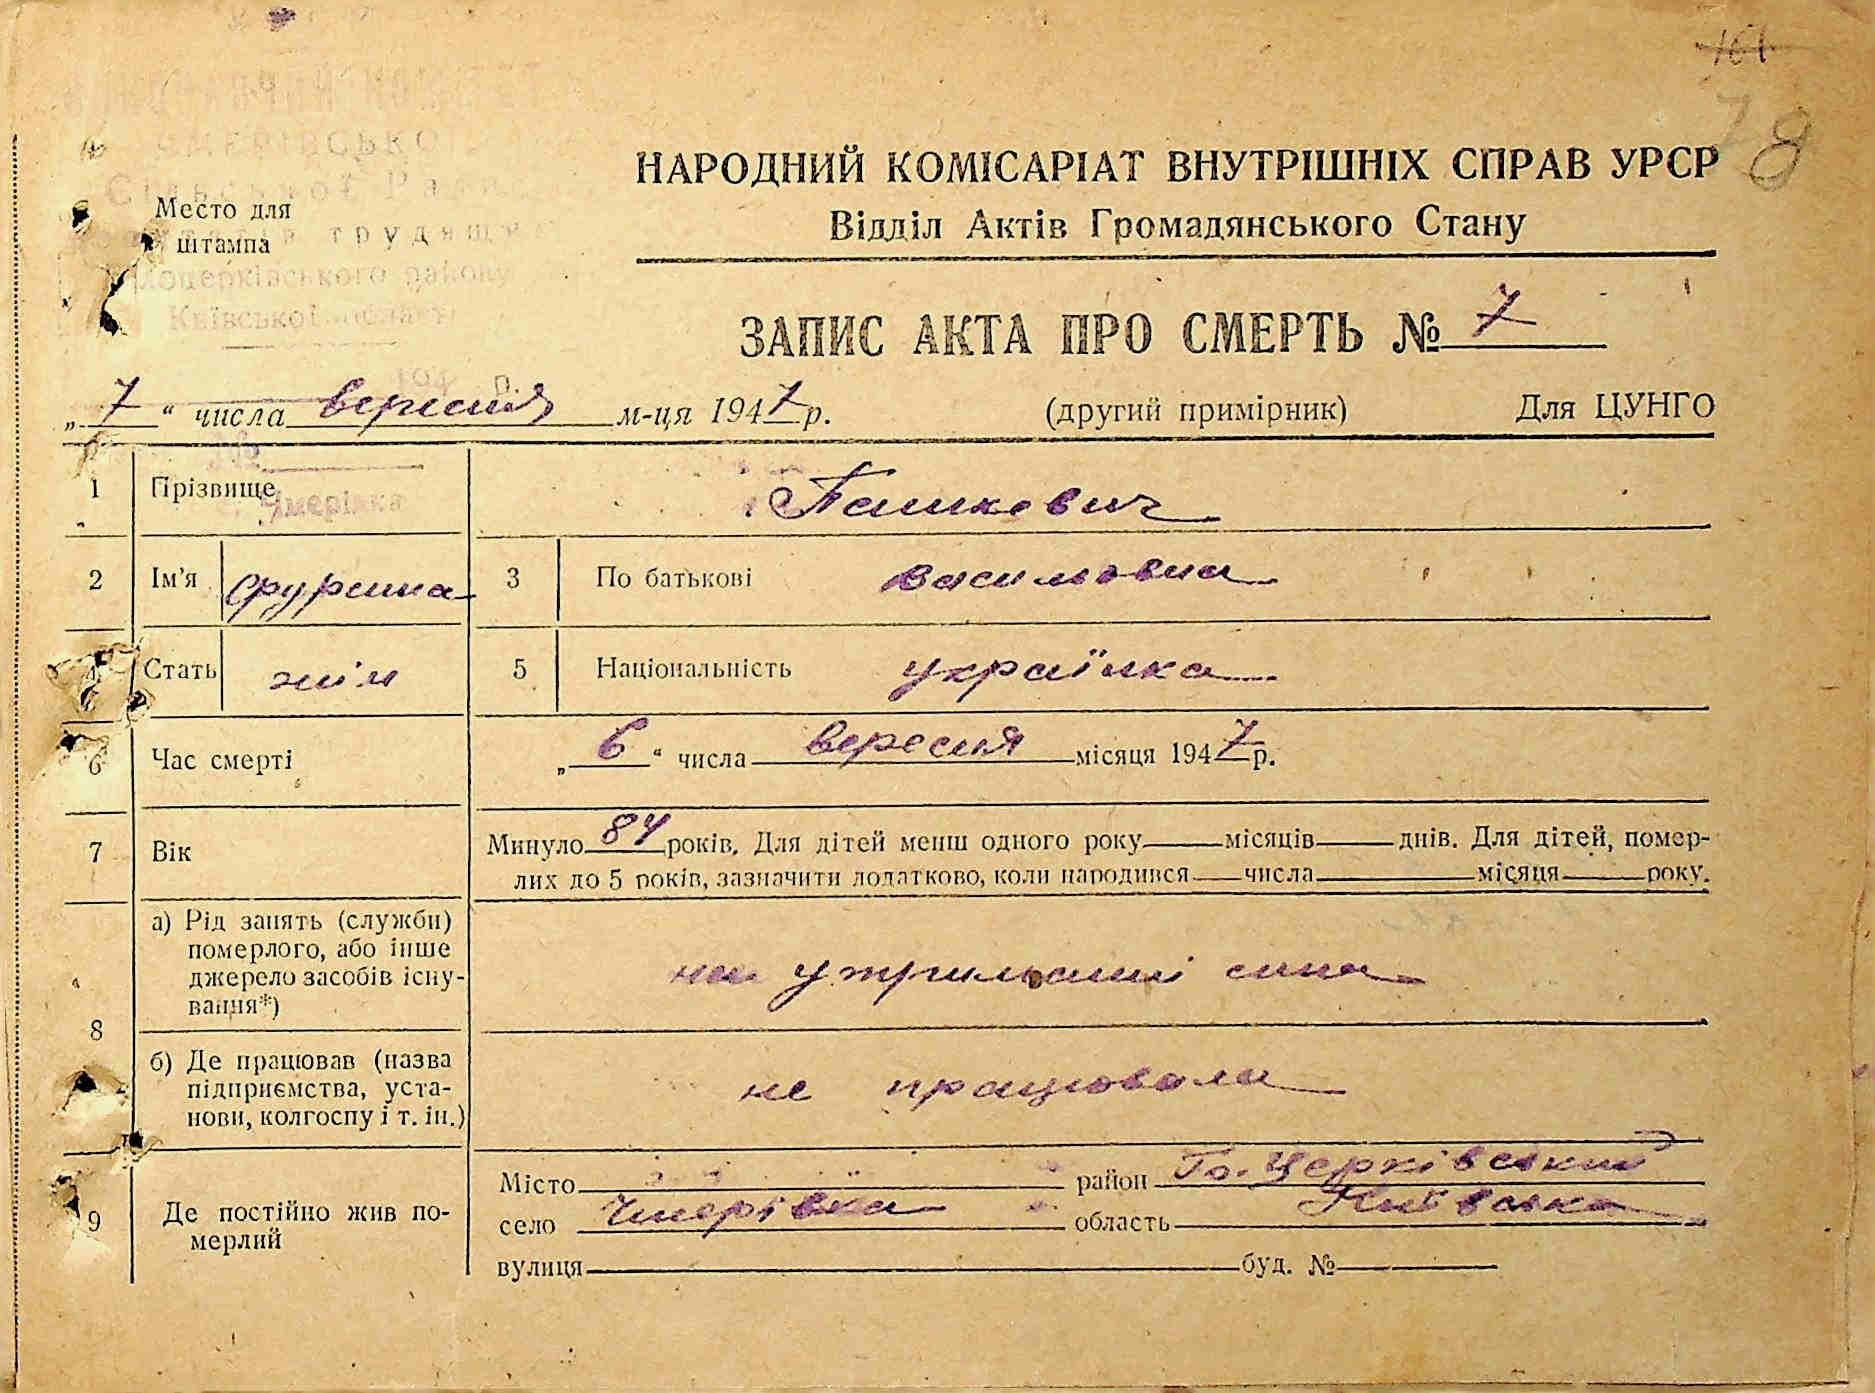 161
78
НАРОДНИЙ КОМІСАРІАТ ВНУТРІШНІХ СПРАВ УРСР
Відділ Актів Громадянського Стану
Сільської Ради
Место для
штампа
трудящих
району
Київської області
ЗАПИС АКТА ПРО СМЕРТЬ № 7
„ 7 “ числа вересня м-ця 1947 р.
(другий примірник) Для ЦУНГО
1 Прізвище Пашкевич
с. Чмерівка
2 Ім’я Фрурсина 3 По батькові Васильовна
Стать жін 5 Національність українка
6 Час смерті „ 6 “ числа вересня місяця 1947 р.
7 Вік Минуло 84 років. Для дітей менш одного року місяців днів. Для дітей, помер-
лих до 5 років, зазначити додатково, коли народився числа місяця року.
8
а) Рід занять (служби)
померлого, або інше
джерело засобів існу-
вання*)
на утриманні сина
б) Де працював (назва
підприємства, уста-
нови, колгоспу і т. ін.)
не працювала
9 Де постійно жив по-
мерлий
Місто район Церківський
село Чмерівка область Київська
вулиця буд. №